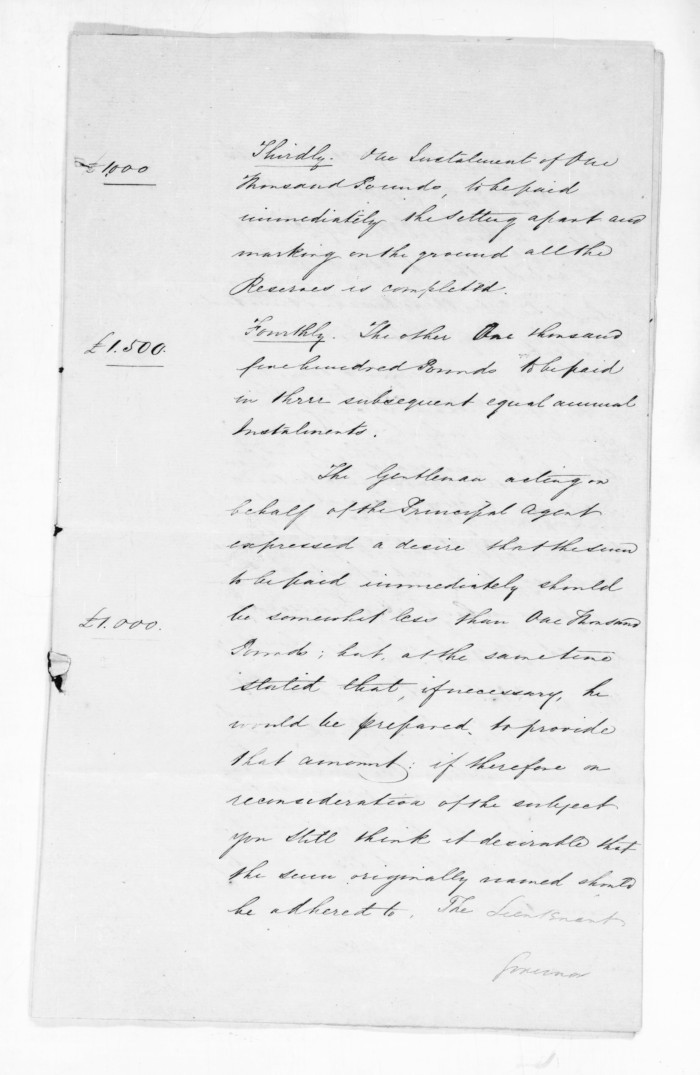 £1000
Thirdly. One Instalment of One
Thousand Pounds, to be paid
immediately the setting apart and
marking on the ground all the
Reserves is completed.
£1.500.
Fourthly. The other One thousand
five hundred Pounds to be paid
in three subsequent equal annual
Instalments.
The Gentleman acting on
behalf of the Principal Agent
expressed a desire that the sum
to be paid immediately should
£1.000.
be somewhat less than One Thousand
Pounds; but, at the same time
stated that, if necessary, he
would be prepared to provide
that amount: if therefore on
reconsideration of the subject
you still think it desirable that
the sum originally named should
be adhered to. The Lieutenant
Governor